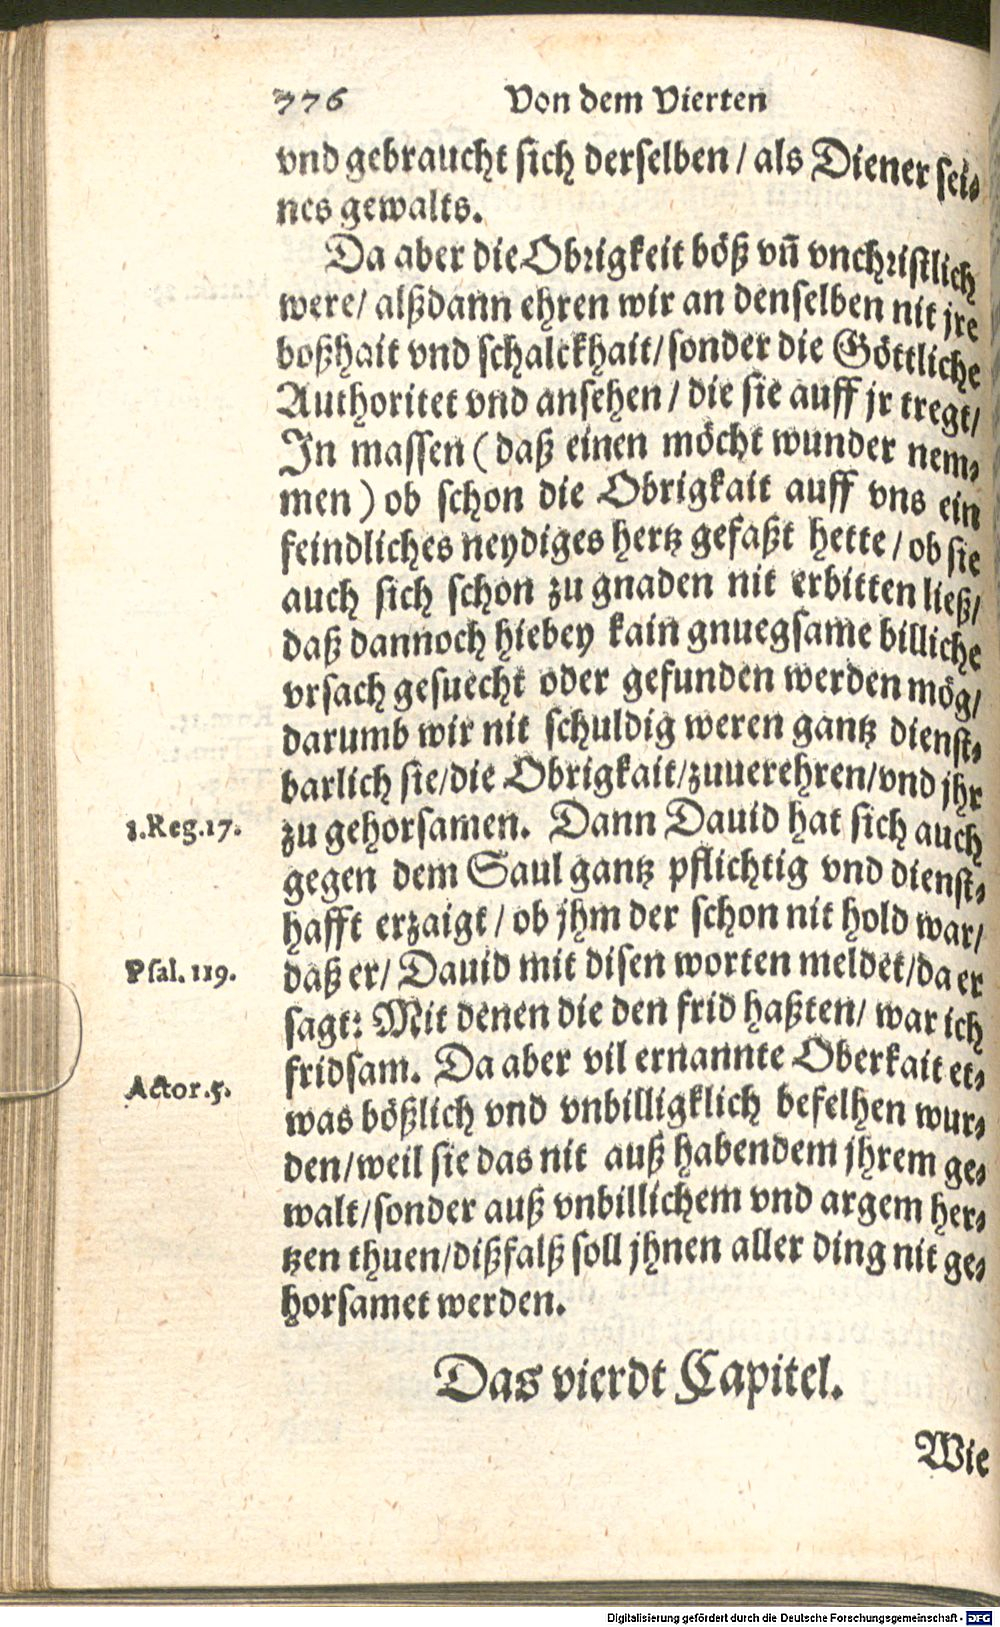 776 Von dem Vierten
vnd gebraucht sich derselben / als Diener sei⸗
nes gewalts.
Da aber die Obrigkeit böß vñ vnchristlich
were/ alßdann ehren wir an denselben nit jre
boßhait vnd schalckhait/ sonder die Göttliche
Authoritet vnd ansehen / die sie auff jr tregt/
In massen ( daß einen möcht wunder nem⸗
men ) ob schon die Obrigkait auff vns ein
feindliches neydiges hertz gefaßt hette / ob sie
auch sich schon zu gnaden nit erbitten ließ/
daß dannoch hiebey kain gnuegsame billiche
vrsach gesuecht oder gefunden werden mög/
darumb wir nit schuldig weren gantz dienst⸗
barlich sie/die Obrigkait/zuuerehren/vnd jhr
1.Reg.17. zu gehorsamen. Dann Dauid hat sich auch
gegen dem Saul gantz pflichtig vnd dienst⸗
hafft erzaigt / ob jhm der schon nit hold war/
Psal. 119. daß er/ Dauid mit disen worten meldet/da er
sagt: Mit denen die den frid haßten/ war ich
fridsam. Da aber vil ernannte Oberkait et⸗
Actor.5. was bößlich vnd vnbilligklich befelhen wur⸗
den/weil sie das nit auß habendem jhrem ge⸗
walt/sonder auß vnbillichem vnd argem her⸗
tzen thuen/dißfalß soll jhnen aller ding nit ge⸗
horsamet werden.
Das vierdt Capitel.
Wie
Digitalisierung gefördert durch die Deutsche Forschungsgemeinschaft - DFG